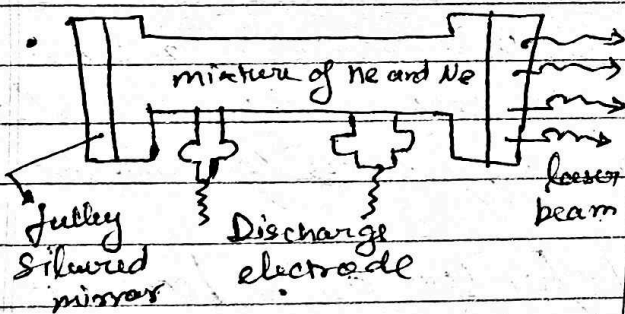 mixture of He and Ne
laser
beam
fulley
Silvered
mirror
Discharge
electrode